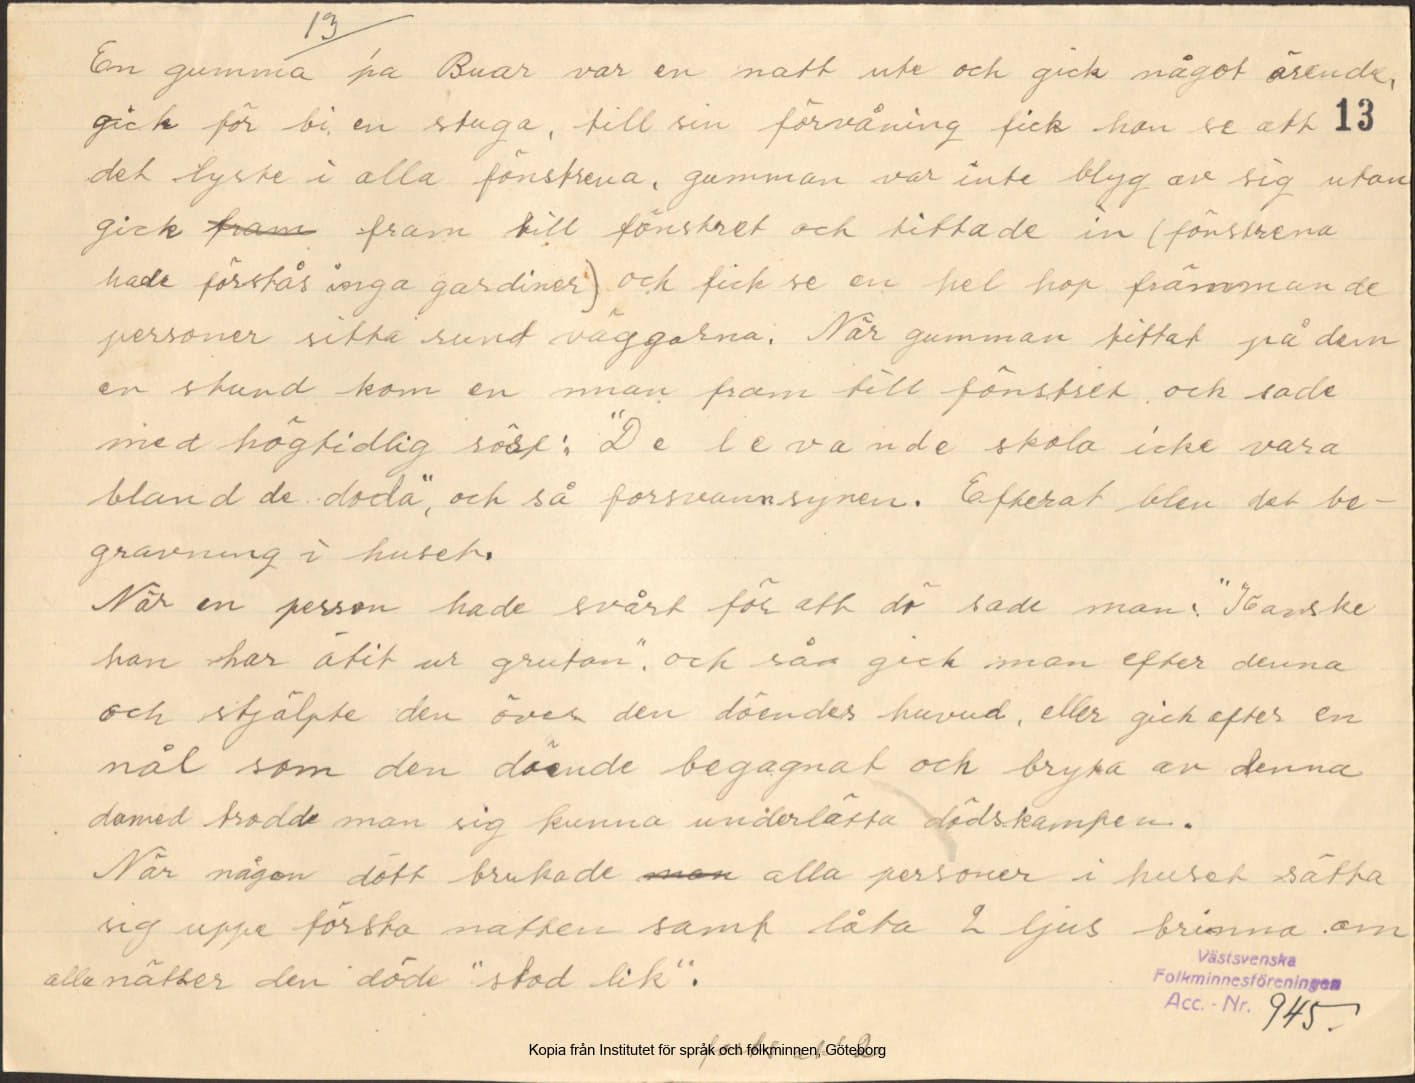 13
En gumma pa Buar var en natt ute och gick något ärende,
gick för bi en stuga, till sin förvåning fick hon se att 13
det lyste i alla fönstrena, gumman var inte blyg av sig utan
gick fram fram till fönstret och tittade in (fönstrena
hade förstås inga gardiner) och fick se en hel hop främmande
personer sitta rund väggarna. När gumman tittat på dem
en stund kom en man fram till fönstret och sade
med högtidlig röst: "De levande skola icke vara
bland de doda", och så forsvann synen. Efterat blev det be-
gravning i huset.
När en person hade svårt för att dö sade man: "Kanske
han har ätit ur grutan". och så gick man efter denna
och stjälpte den över den döendes huvud, eller gick efter en
nål som den döende begagnat och bryta av denna
damed trodde man sig kunna underlätta dödskampen.
När någon dött brukade man alla personer i huset sätta
sig uppe första natten samt låta 2 ljus brinna om
alla nätter den döde "stod lik".
Västsvenska
Folkminnesföreningen
Acc. - Nr. 945.
Kopia från Institutet för språk och folkminnen, Göteborg